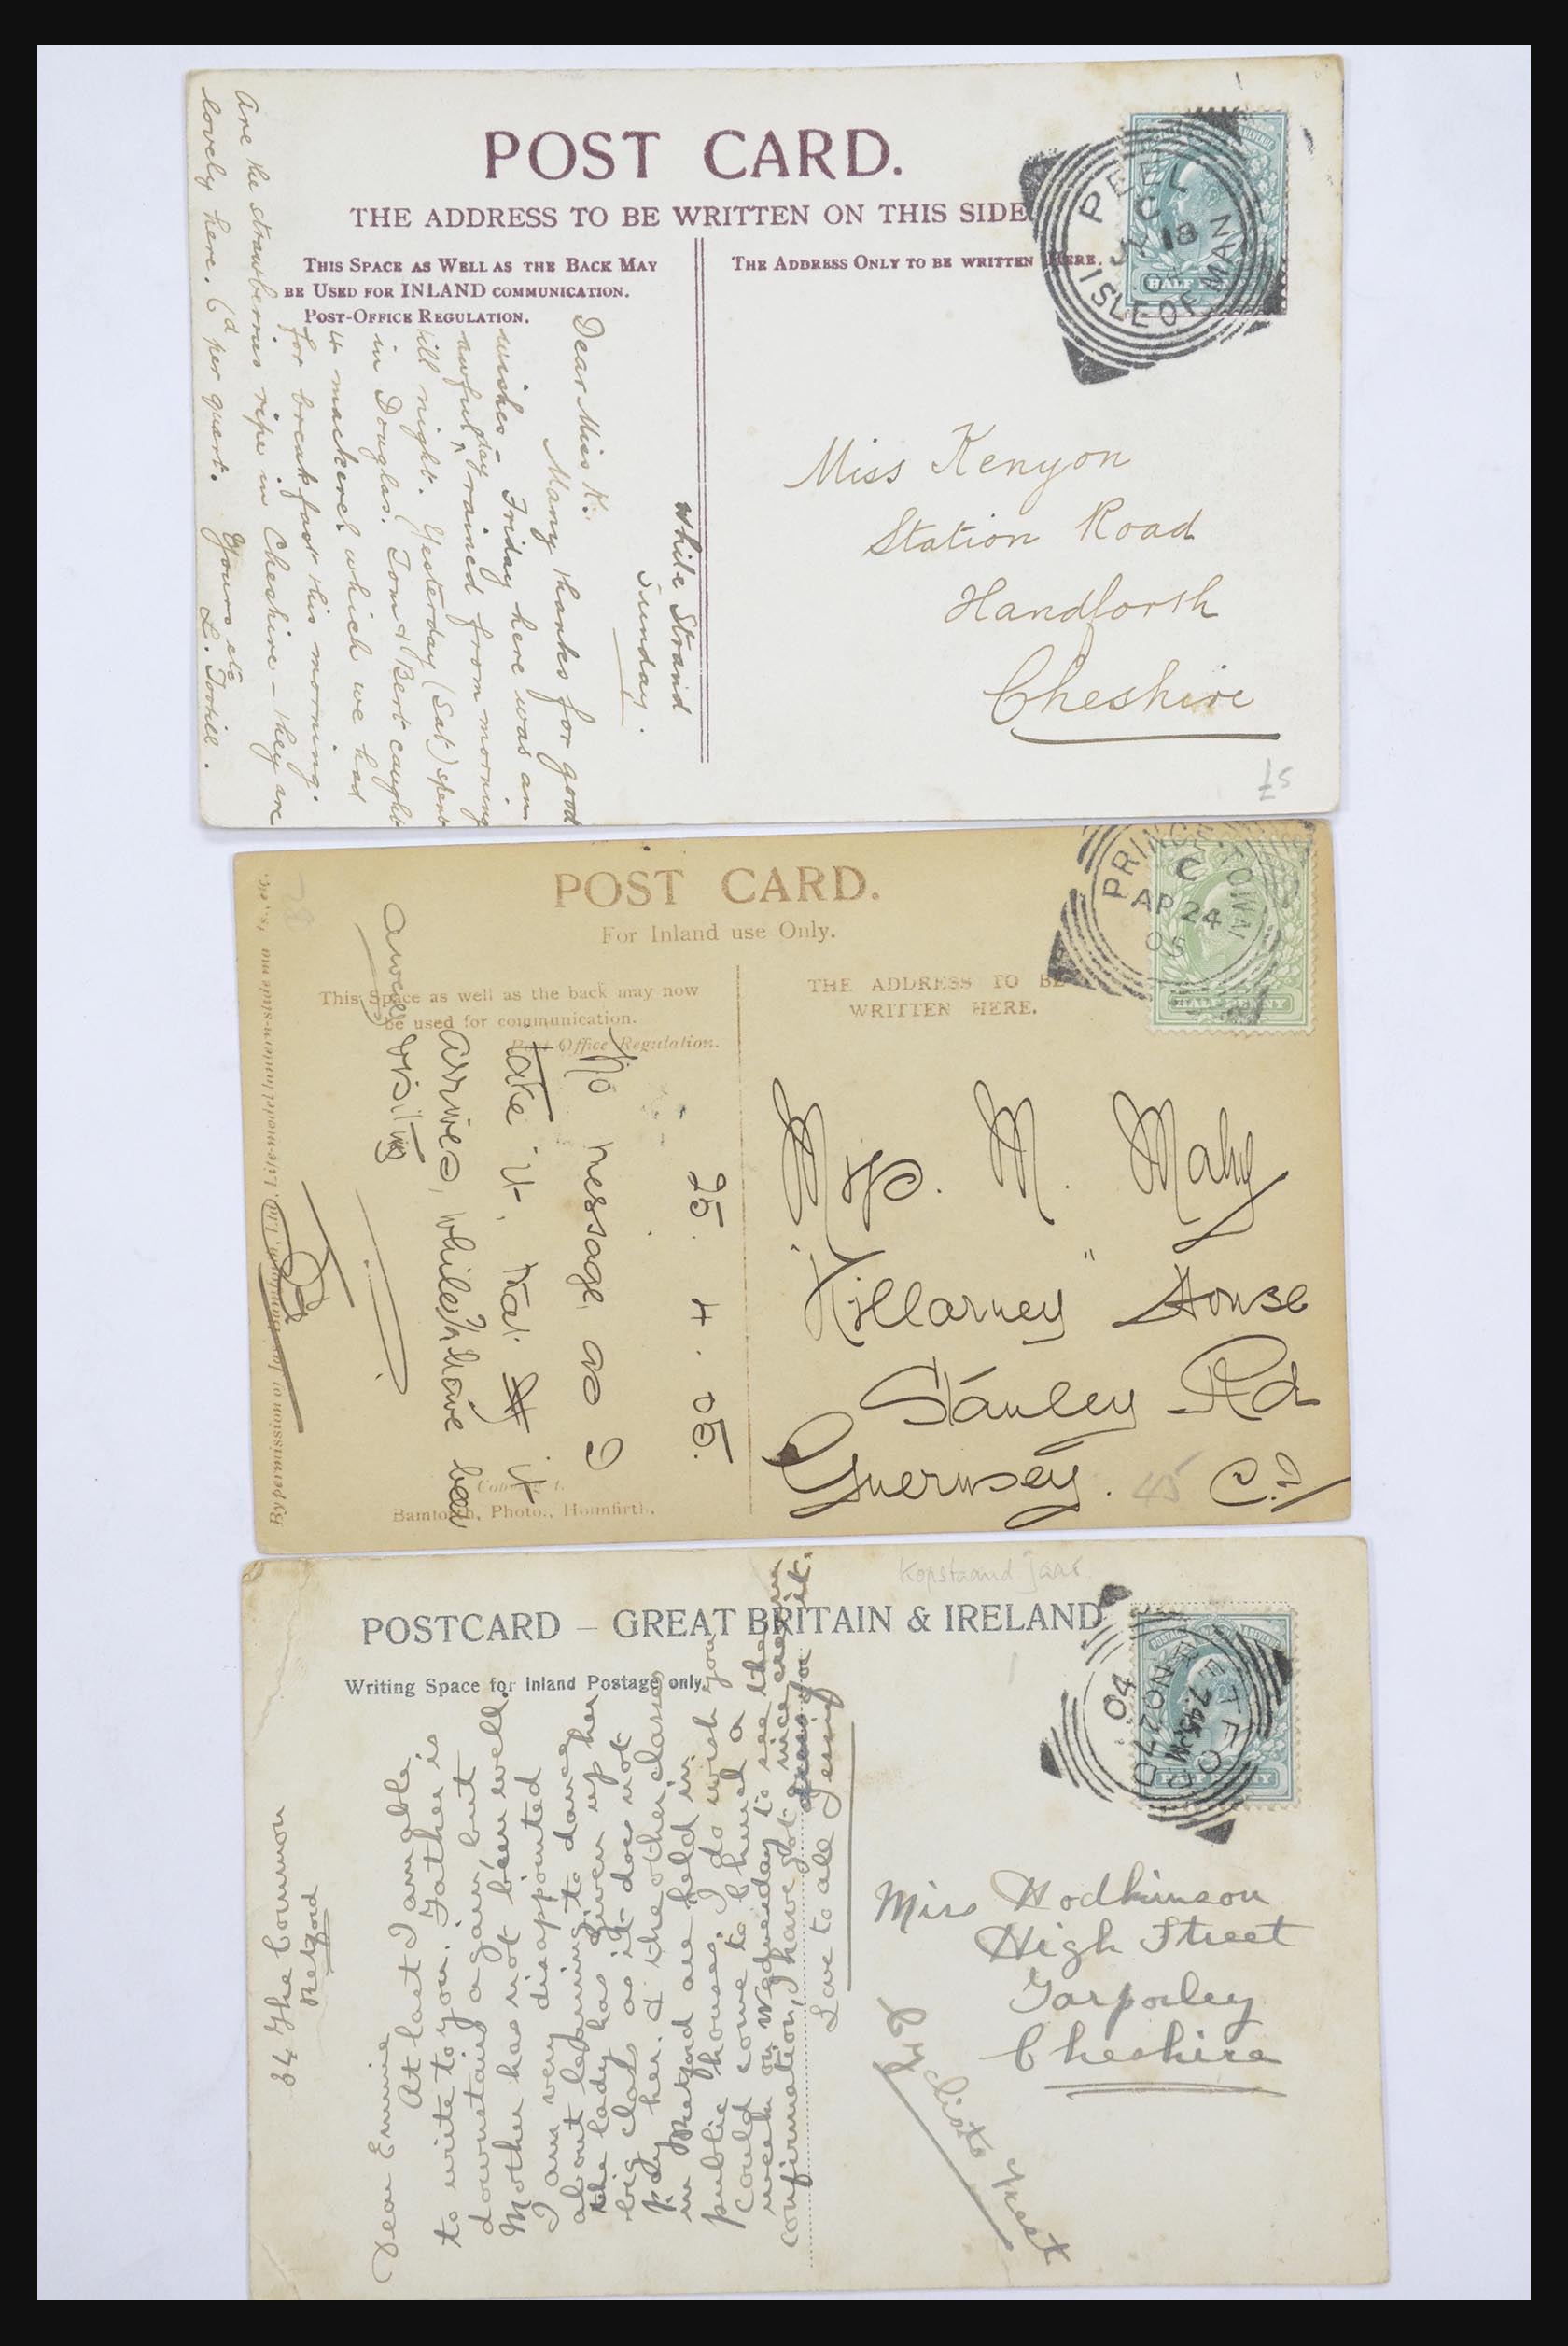 POST CARD.
THE ADDRESS TO BE WRITTEN ON THIS SIDE
THIS SPACE AS WELL AS THE BACK MAY
BE USED FOR INLAND COMMUNICATION.
POST-OFFICE REGULATION.
THE ADDRESS ONLY TO BE WRITTEN HERE.
PEEL
C
18
ISLE OF MAN
HALF PENNY
White Strand
Sunday.
Dear Miss K.
Many thanks for good
wishes Friday here was an
awful day rained from morning
till night. Yesterday (Sat) spent
in Douglas. Tom & Bert caught
mackerel which we had
for breakfast this morning.
Are the strawberries ripe in Cheshire - they are
lovely here. 6d per quart.
Yours etc
L. Toohill.
Miss Kenyon
Station Road
Handforth
Cheshire
£5
POST CARD.
For Inland use Only.
This Space as well as the back may now
be used for communication.
Post Office Regulation.
THE ADDRESS TO BE
WRITTEN HERE.
PRINCETOWN
C
AP 24
05
HALF PENNY
25. 4. 05.
No message, as I
take it, that it
arrives, whilest have been
away visiting
Miss. M. Mahy
"Killarney" House
Stanley Rd
Guernsey. C.I
45
Bamforth, Photo., Holmfirth.
Kopstaand jaar
POSTCARD – GREAT BRITAIN & IRELAND
Writing Space for Inland Postage only.
RETFORD
7.45PM
NO 27
04
HALF PENNY
64 The Common
Retford
Dear Emmie
At last I am able
to write to you. Father is
downstairs again, but
Mother has not been well.
I am very disappointed
about learning to dance
the lady has given up her
big class as it does not
pay her. & the other classes
in Retford are held in
public houses. I do wish you
could come to Church a
week on Wednesday to see the
confirmation, I have got nice cream
dress for it.
Love to all Jessie
Miss Hodkinson
High Street
Tarporley
Cheshire